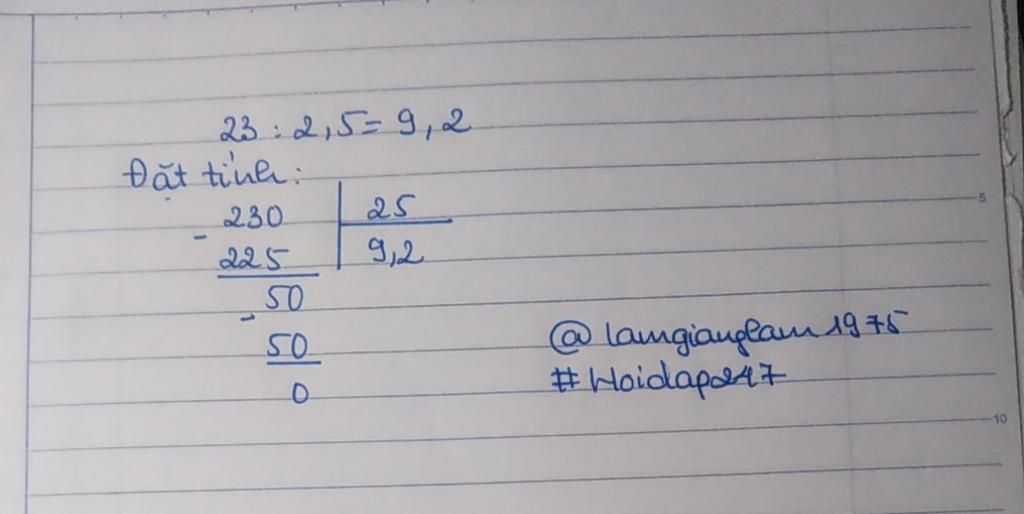 23 : 2,5 = 9,2
Đặt tính:
230 25
- 225 9,2
- 50
50
0
@lamgianglam1975
#Hoidap247
5
10